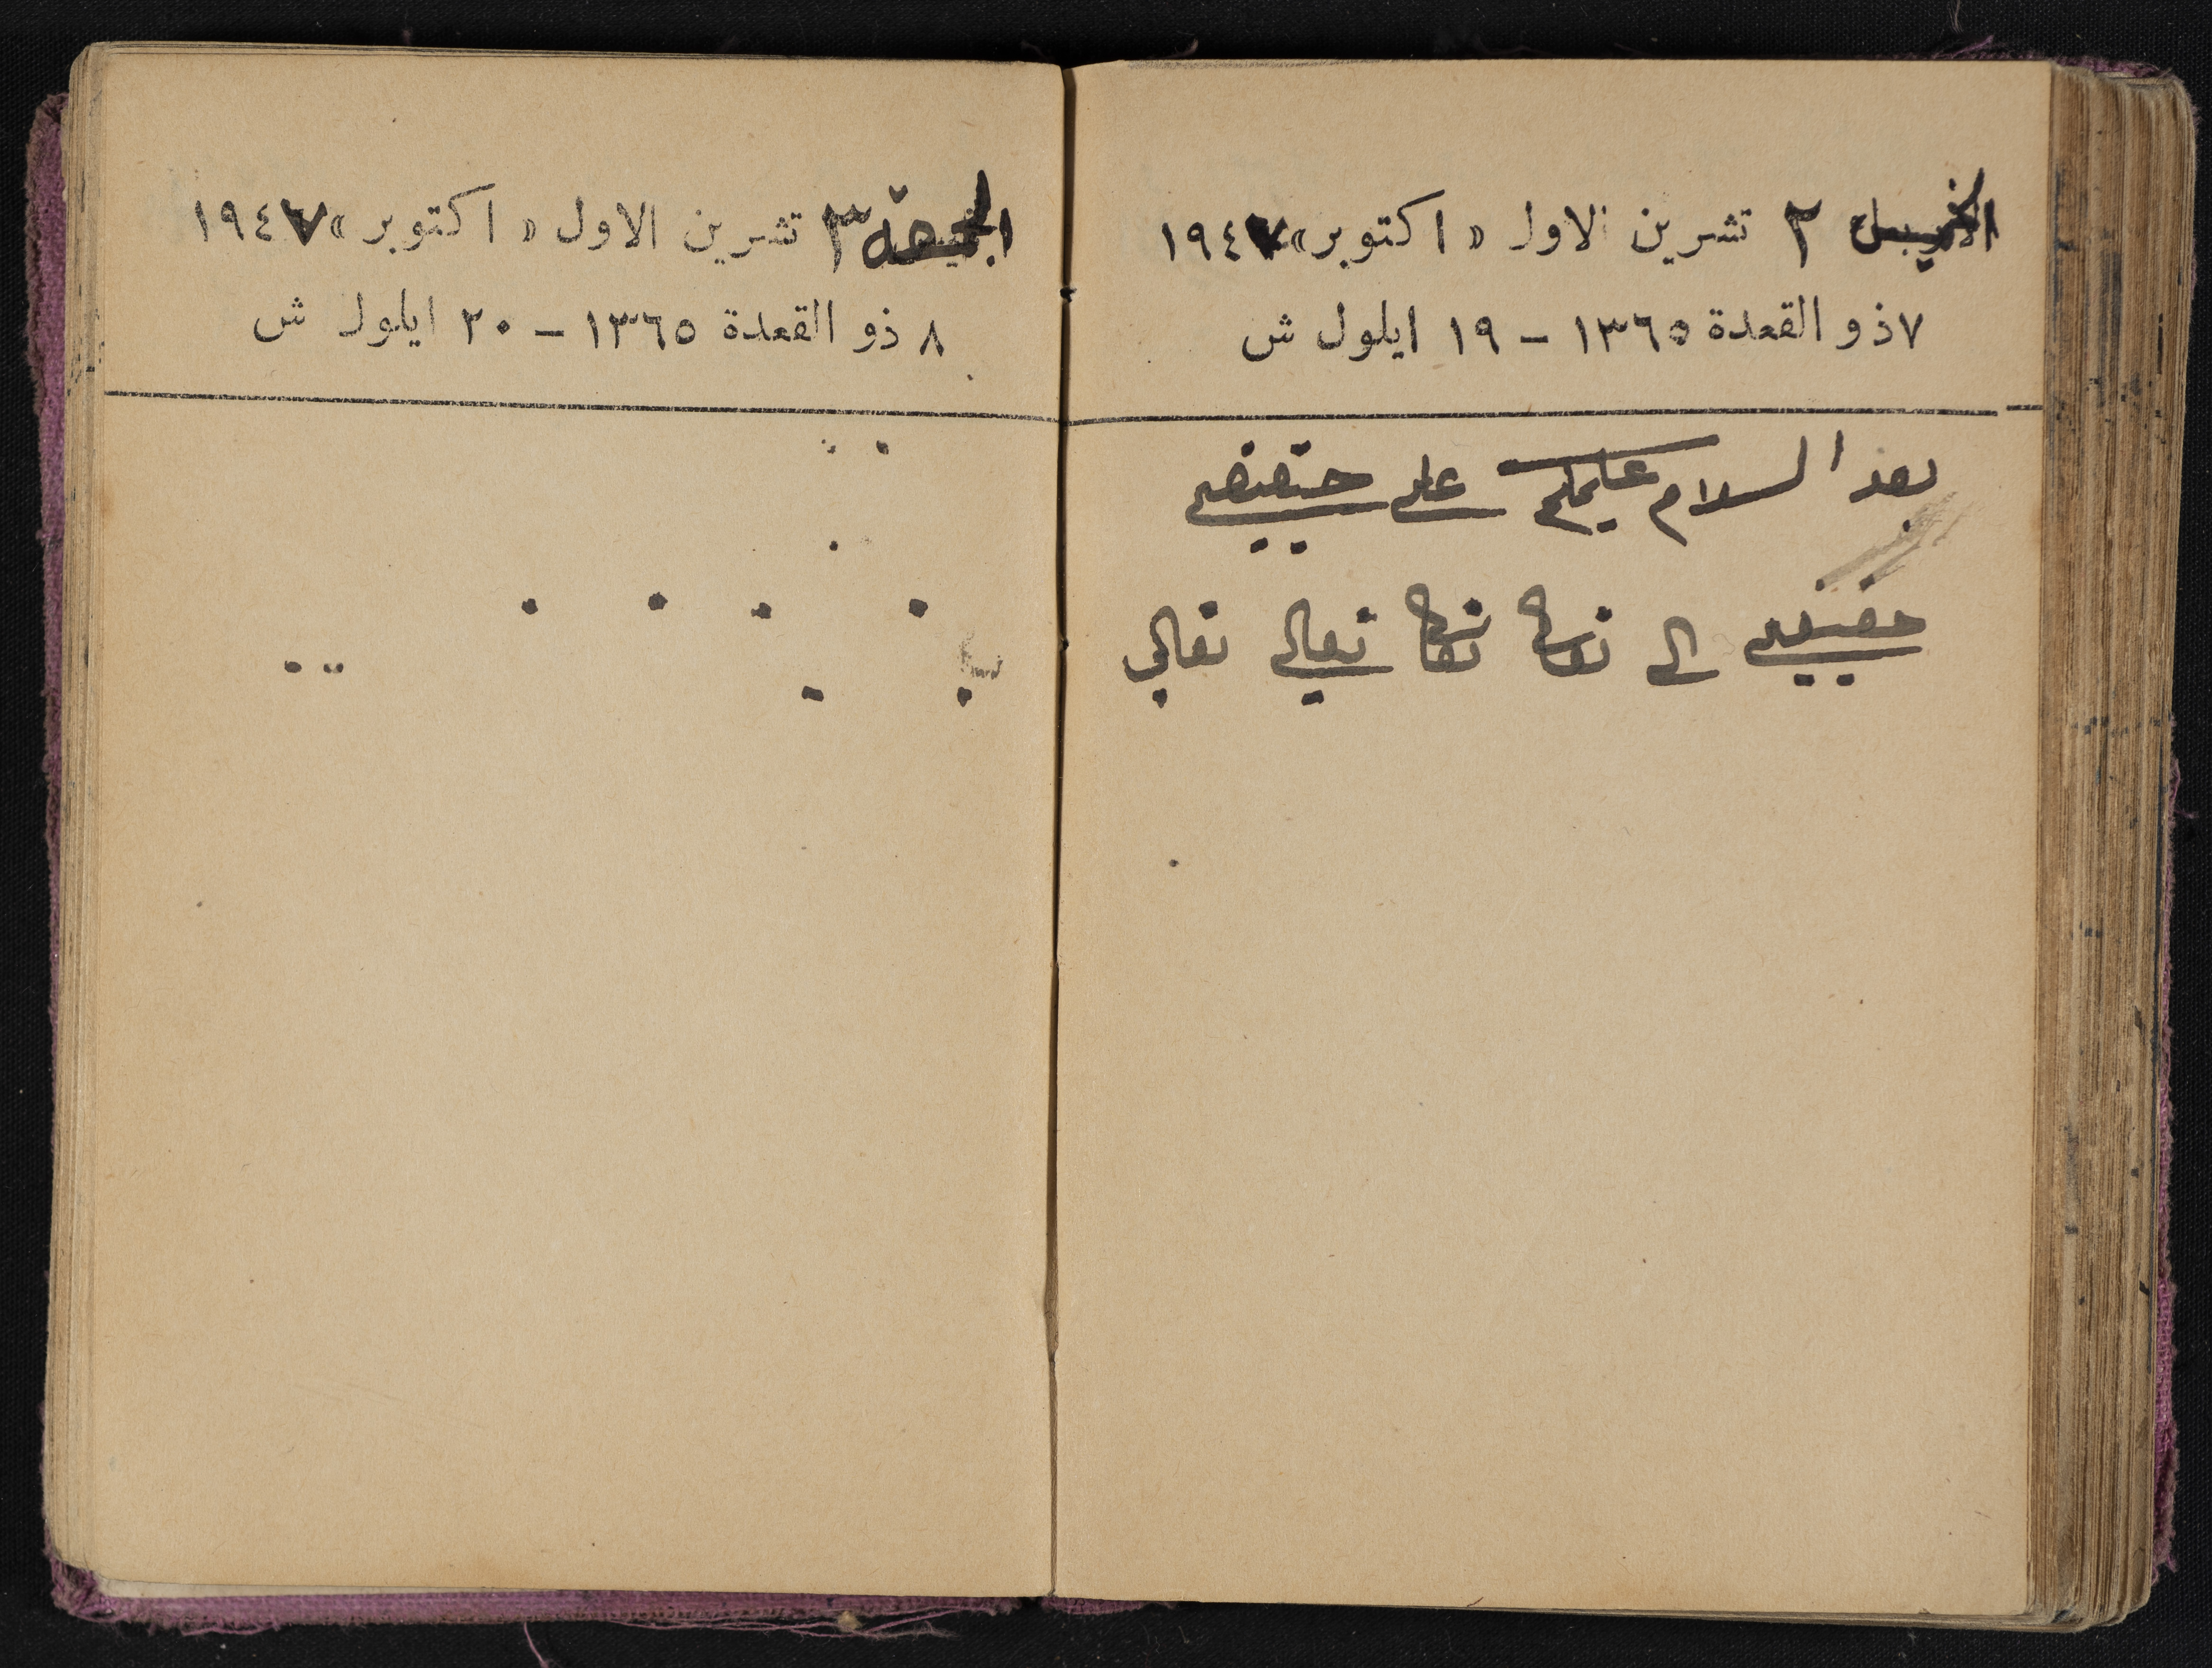 الخميس ٢ تشرين الاول « اكتوبر » ١٩٤٧
٧ ذو القعدة ١٣٦٥ – ١٩ ايلول ش
بعد السلام عليكم على
الى تعالى تعالي
الجمعة ٣ تشرين الاول « اكتوبر » ١٩٤٧
٨ ذو القعدة ١٣٦٥ – ٢٠ ايلول ش